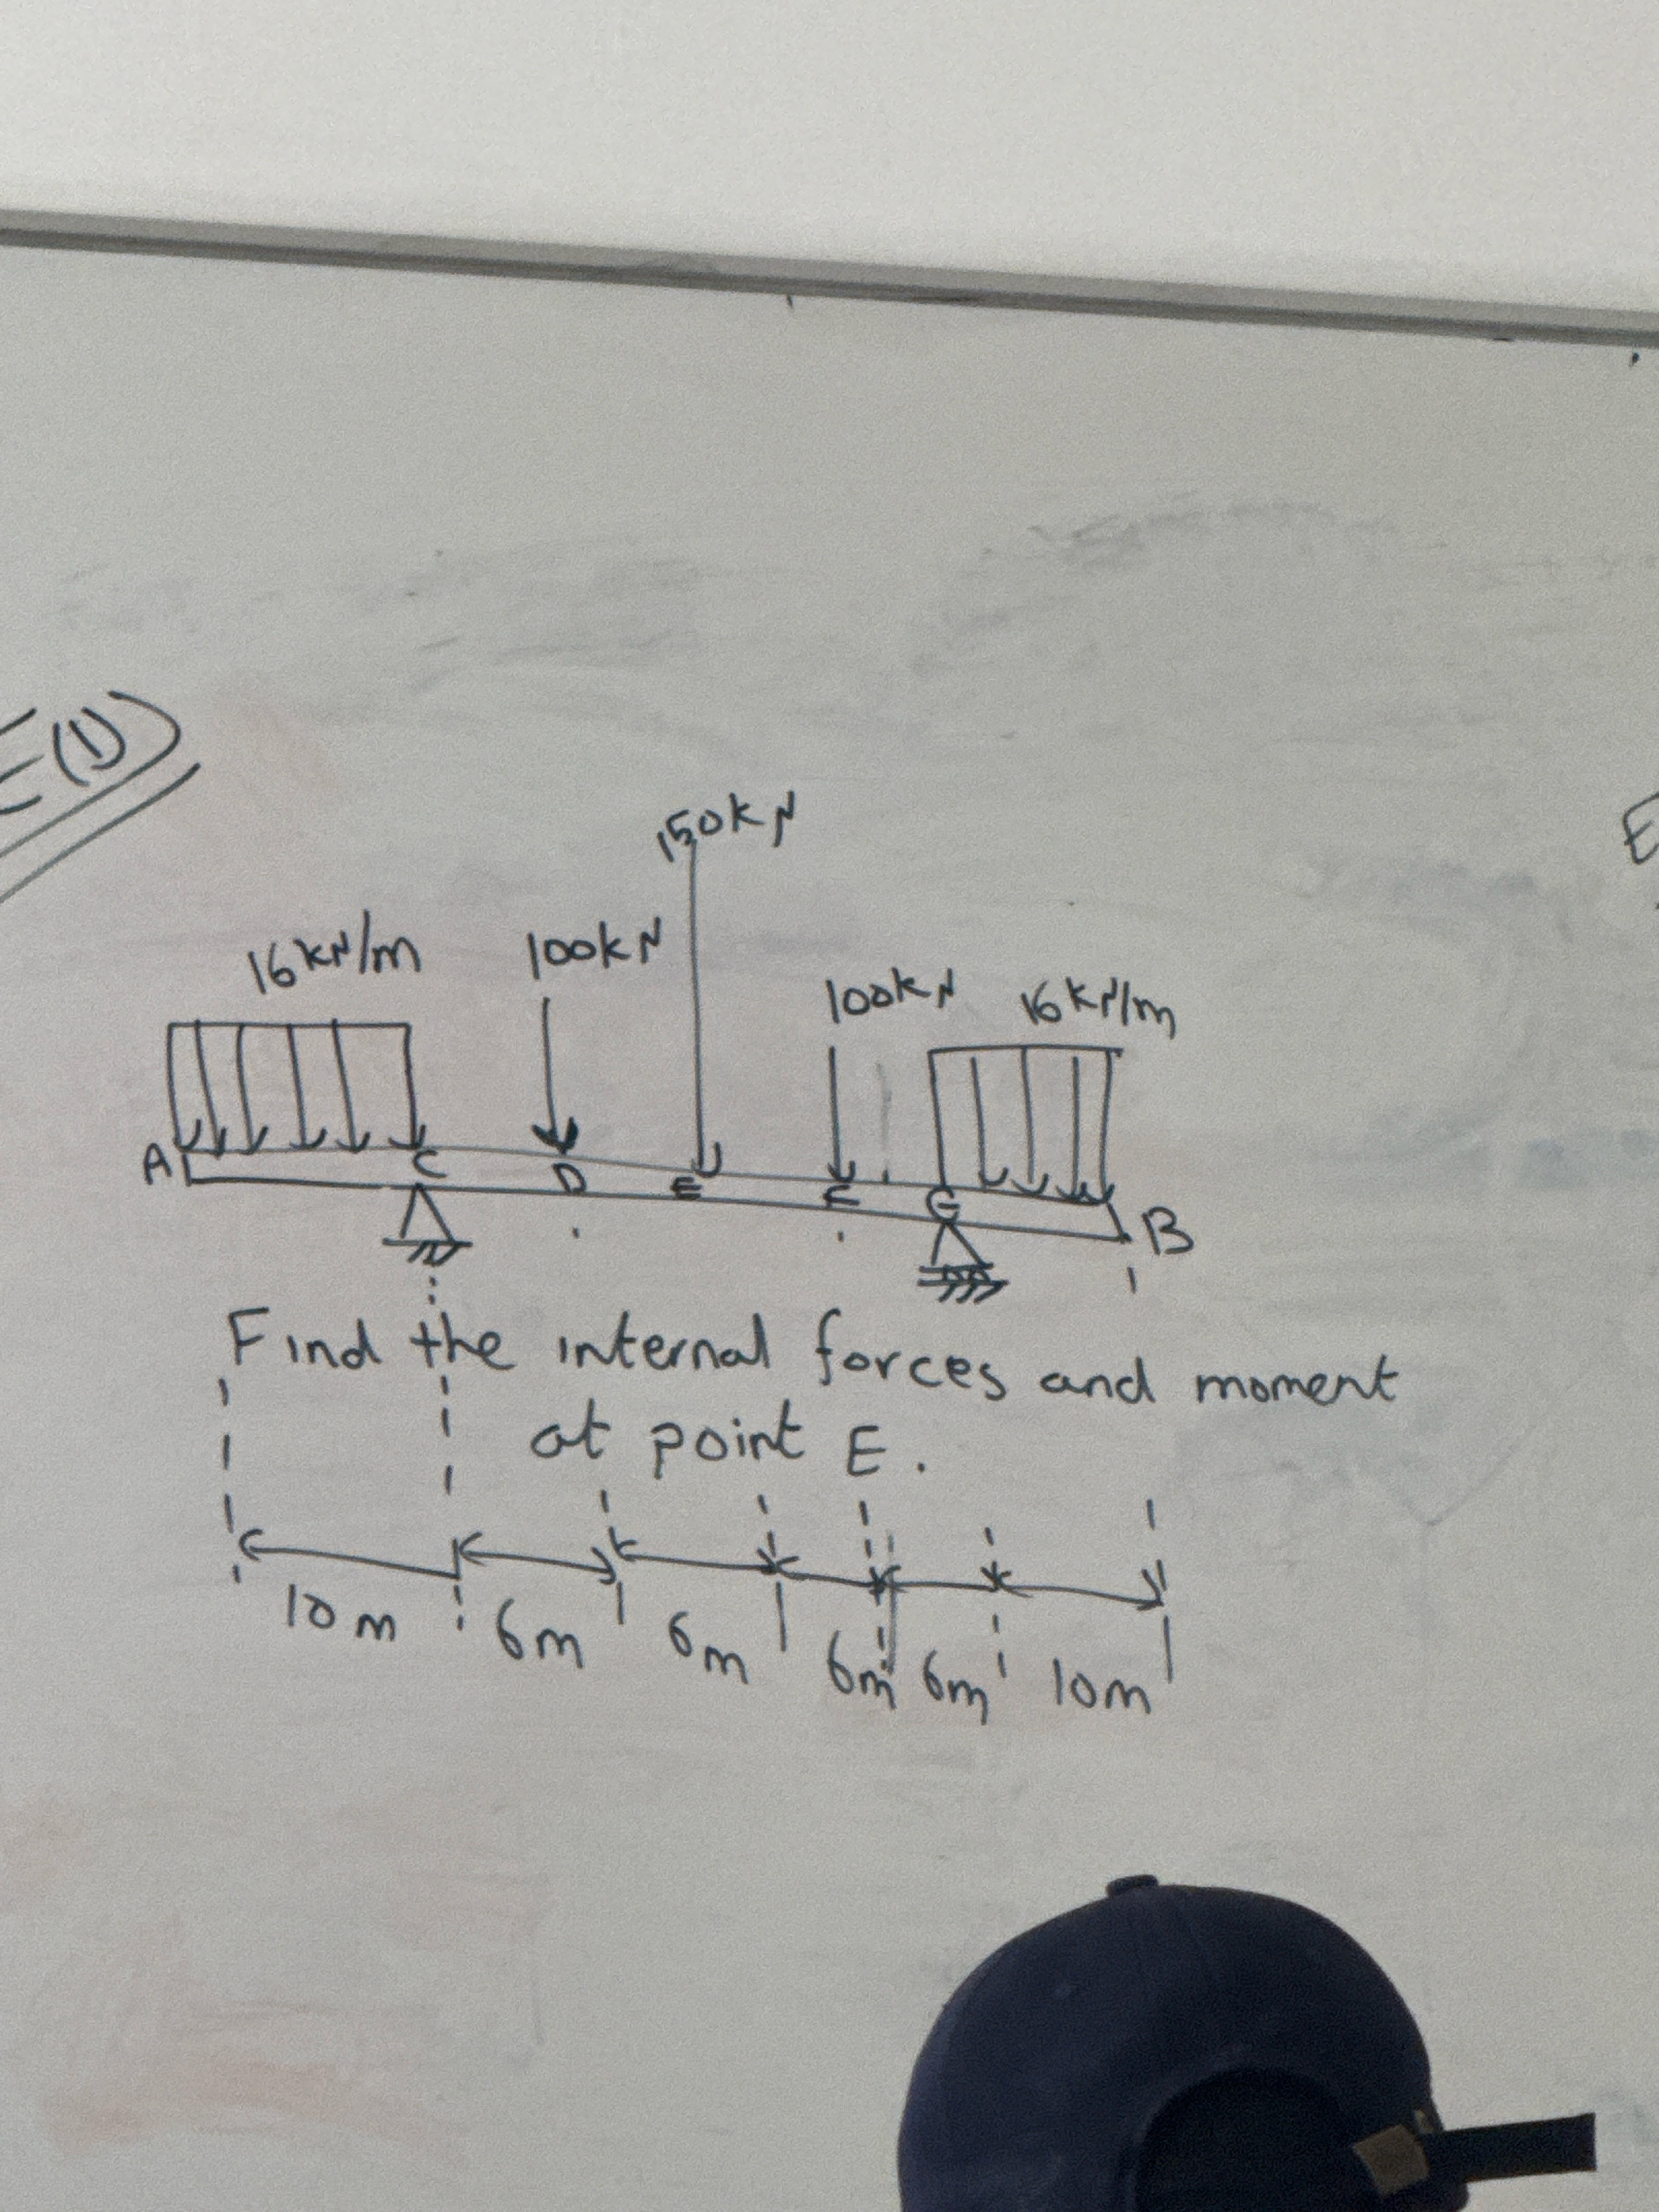 E(1)
E
150kN
16kN/m
100kN
100kN
16kN/m
A
C
D
E
F
G
B
Find the internal forces and moment
at point E.
10m
6m
6m
6m
6m
10m